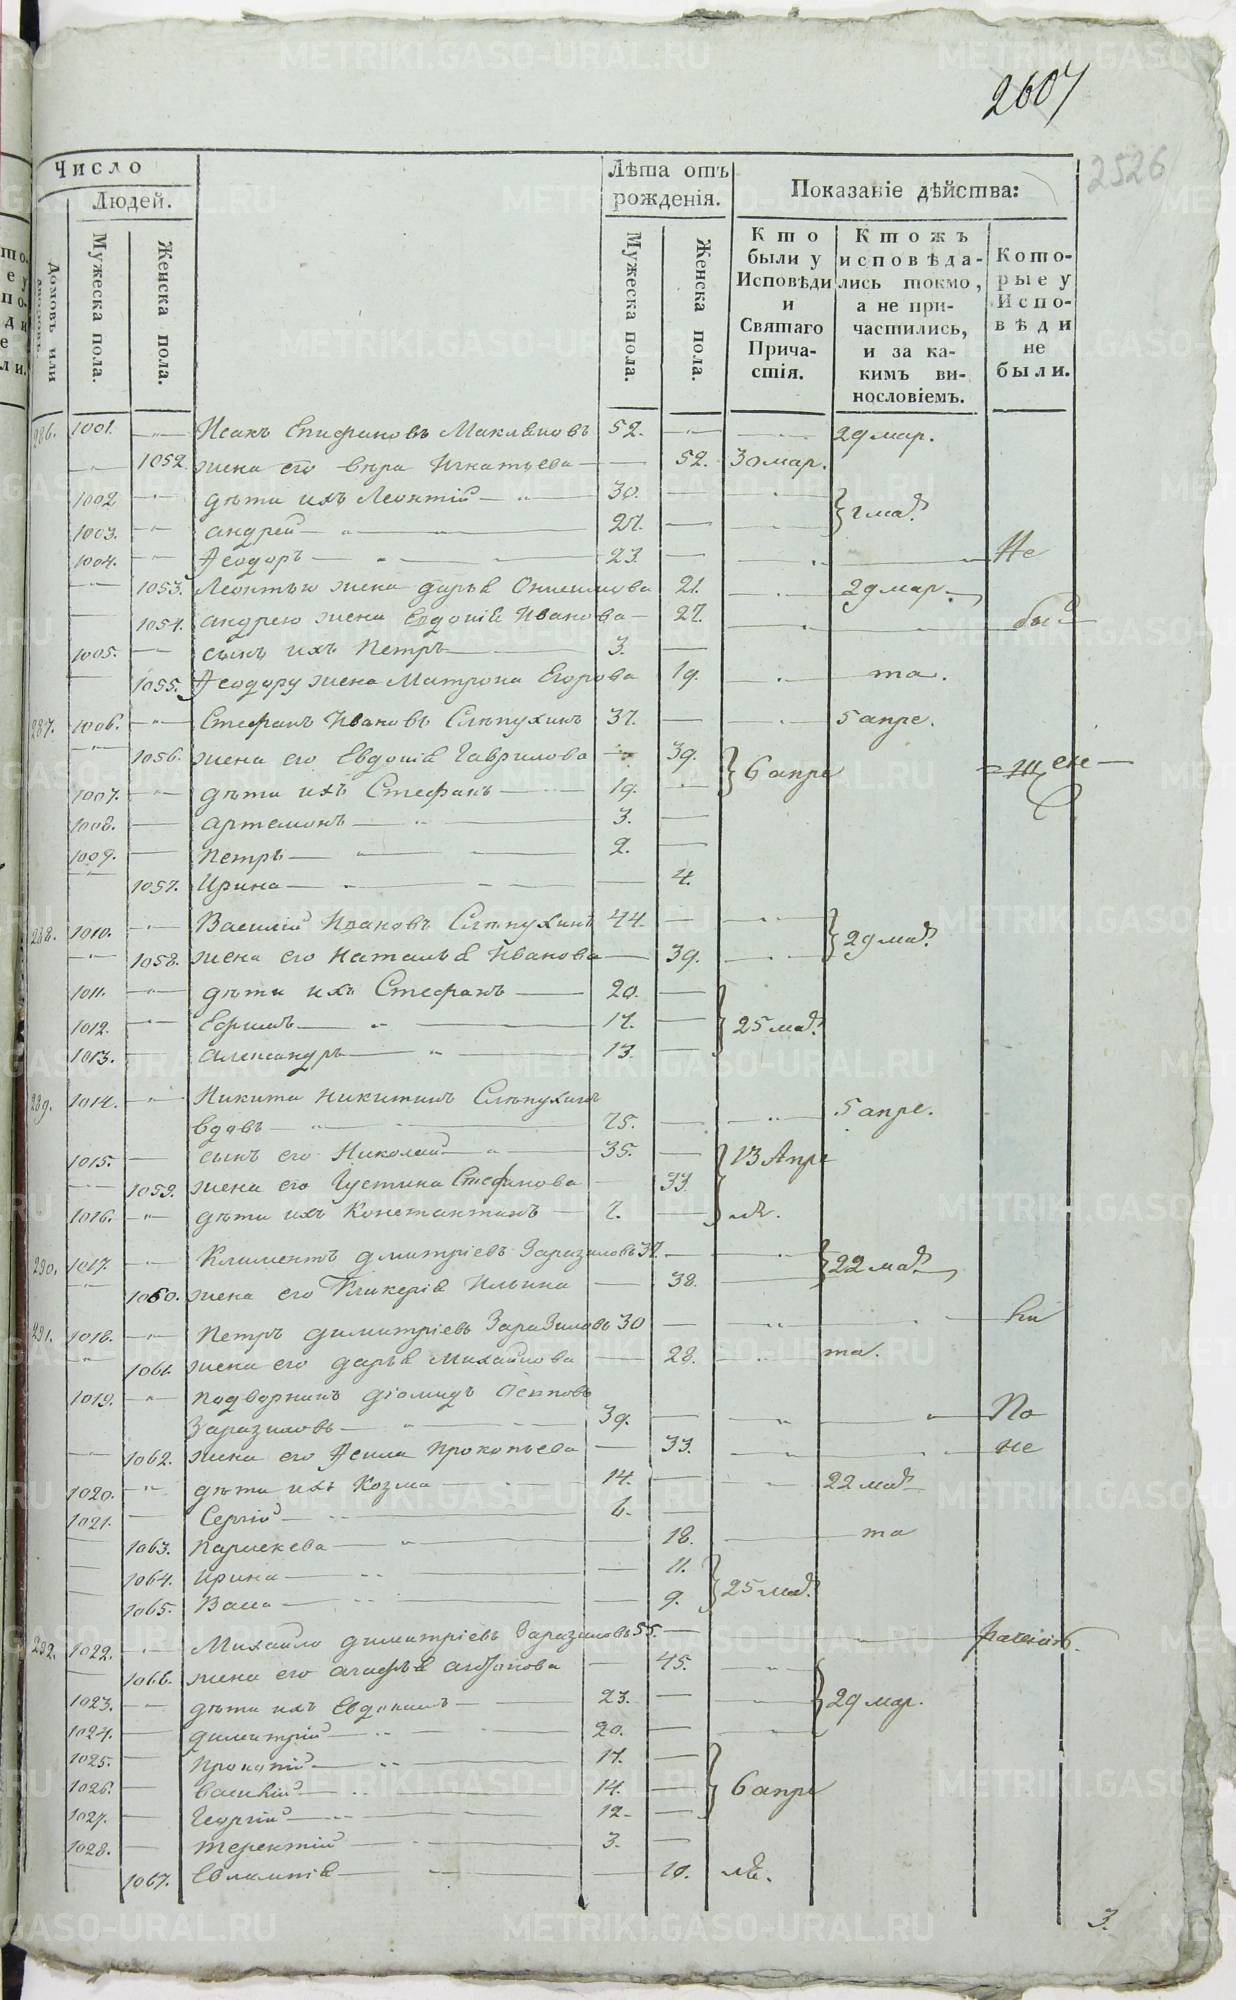 2607
2526
Число
Людей.
Домовъ или дворовъ.
Мужеска пола.
Женска пола.
Лѣта отъ рожденія.
Мужеска пола.
Женска пола.
Показаніе дѣйства:
Кто были у Исповѣди и Святаго Причастія.
Ктожъ исповѣдались токмо, а не причастились, и за какимъ винословіемъ.
Которые у Исповѣди не были.
286. 1001. Исакъ Епифановъ Макляновъ 52. 29 мар.
1052. жена его Вѣра Игнатьева 52. 30 мар.
1002 дѣти ихъ Леонтій 30.
1003. андрей 27.
1004. Ѳеодоръ 23. Не
1053. Леонтью жена дарья Онисимова 21. 29 мар.
1054. андрею жена Евдокія Иванова 27.
1005. сынъ ихъ Петръ 3.
1055. Ѳеодору жена Матрона Егорова 19. та.
287. 1006. Стефанъ Ивановъ Слѣпухинъ 37. 5 апре.
1056. жена его Евдокія Гаврилова 39. 6 апре
1007. дѣти ихъ Стефанъ 19.
1008. артемонъ 3.
1009. Петръ 2.
1057. Ирина 4.
288. 1010. Василій Ивановъ Слѣпухинъ 44. 29 ма
1058. жена его Наталья Иванова 39.
1011. дѣти ихъ Стефанъ 20. 25 ма
1012. Ефимъ 17.
1013. александръ 13.
289. 1014. Никита Никитинъ Слѣпухинъ
вдовъ 75. 5 апре.
1015. сынъ его Николай 35. 13 Апре
1059. жена его Густина Стефанова 33
1016. дѣти ихъ Константинъ 7.
290. 1017. Климентъ димитріевъ Заразиловъ 37. 22 ма
1060. жена его Гликерія Ильина 38.
291. 1018. Петръ димитріевъ Заразиловъ 30
1061. жена его дарья Михайлова 28. та.
1019. подворникъ діомидъ Осиповъ
Заразиловъ 39. По
1062. жена его Ѳекла Прокопьева 33. не
1020. дѣти ихъ Козма 14. 22 ма
1021. Сергій 6.
1063. Параскева 18. та
1064. Ирина 11. 25 ма
1065. Васа 9.
292. 1022. Михайло димитріевъ Заразиловъ 55.
1066. жена его агафья 45.
1023. дѣти ихъ Евдокимъ 23. 29 мар.
1024. димитрій 20.
1025. Прокопій 17.
1026. Василій 14. 6 апре
1027. Георгій 12.
1028. терентій 3.
1067. Евлампія 10.
3.
METRIKI.GASO-URAL.RU